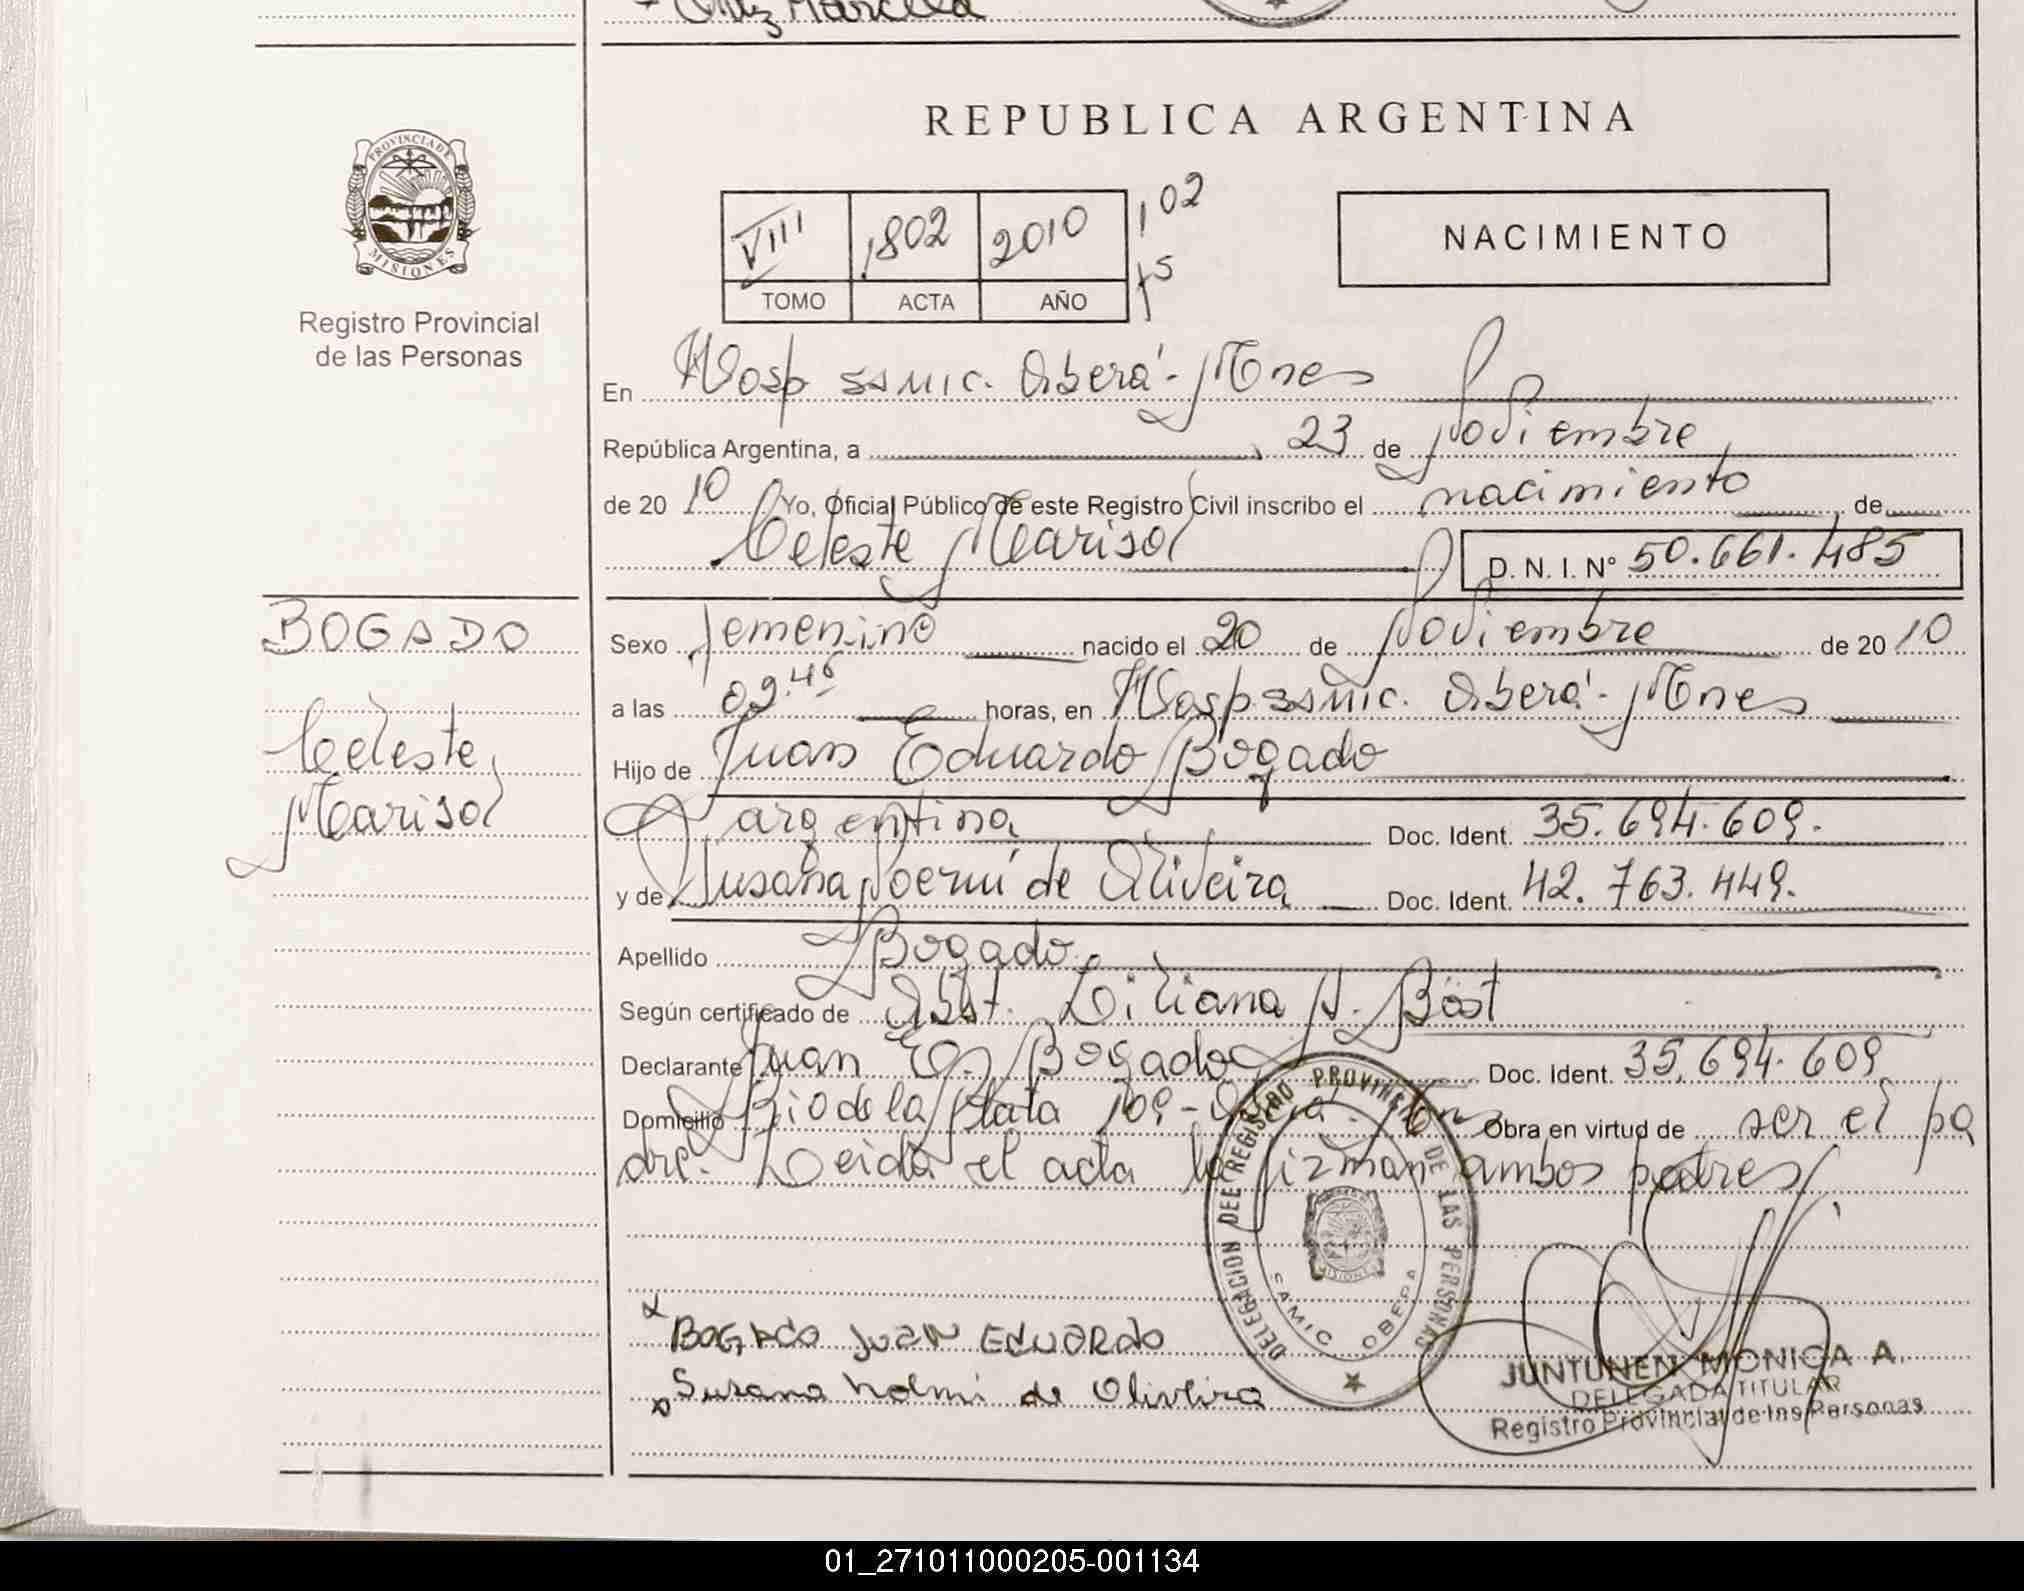 Ortiz Marcela
REPUBLICA ARGENTINA
PROVINCIA DE
MISIONES
Registro Provincial
de las Personas
VIII 1802 2010 102
TOMO ACTA AÑO
NACIMIENTO
En Hosp SSMIC. Oberá - Mnes
República Argentina, a 23 de Noviembre
de 20 10 Yo, Oficial Público de este Registro Civil inscribo el nacimiento de
Celeste Marisol D. N. I. Nº 50.661.485
BOGADO
Celeste
Marisol
Sexo femenino nacido el 20 de Noviembre de 20 10
a las 02.45 horas, en Hosp SSMIC. Oberá - Mnes
Hijo de Juan Eduardo Bogado
argentina Doc. Ident. 35.694.609.
y de Susana Noemí de Oliveira Doc. Ident. 42.763.449.
Apellido Bogado
Según certificado de Obst. Liliana N. Böst
Declarante Juan E. Bogado Doc. Ident. 35.694.609
Domicilio Rio de la Plata 109 - Oberá - Mnes Obra en virtud de ser el pa
dre. Leida el acta la firman ambos padres
DELEGACION DEL REGISTRO PROVINCIAL DE LAS PERSONAS
MISIONES
SAMIC OBERA
x BOGADO JUAN EDUARDO
x Susana Noemí de Oliveira
JUNTUNEN MONICA A.
DELEGADA TITULAR
Registro Provincial de las Personas
01_271011000205-001134